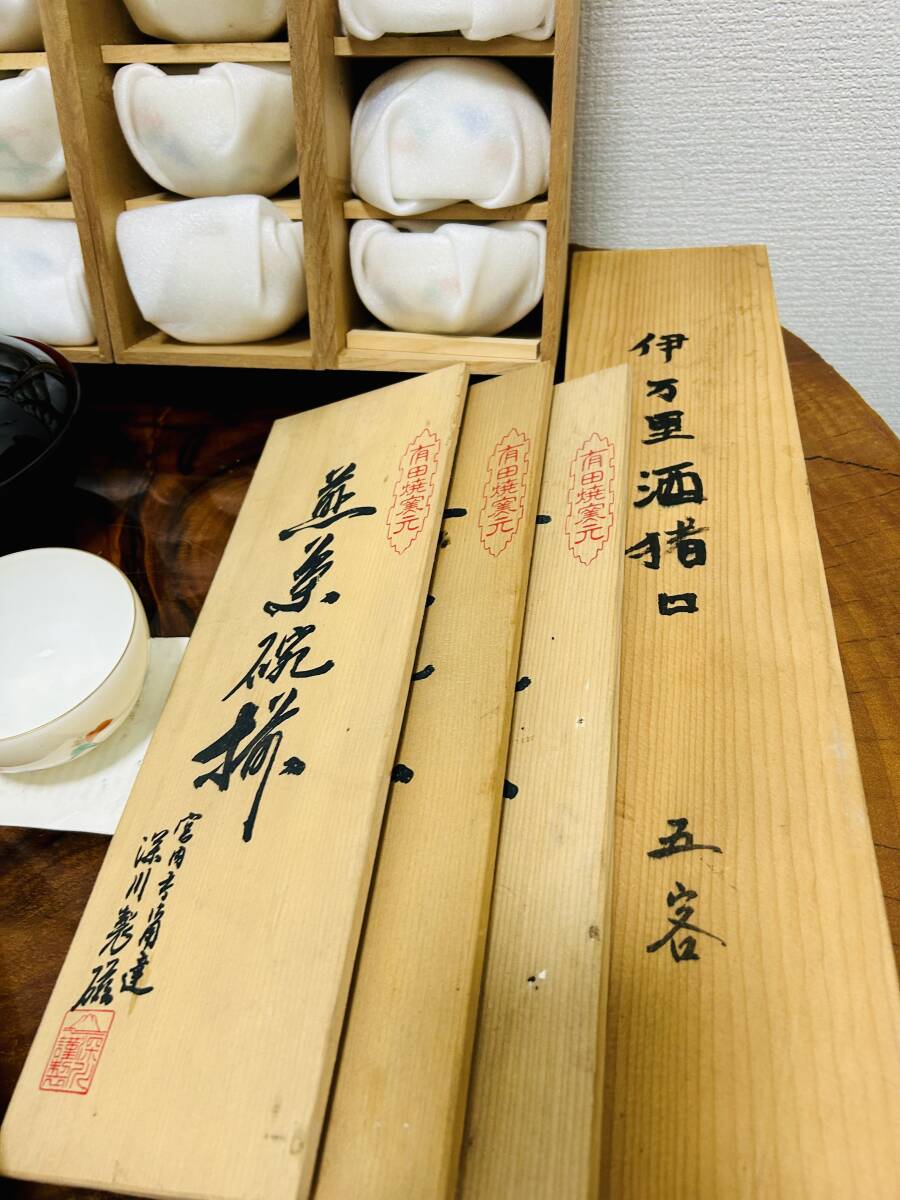 伊万里酒猪口
五客
有田焼窯元
有田焼窯元
有田焼窯元
蒸茶碗揃
宮内庁御用達
深川製磁
深川
謹製